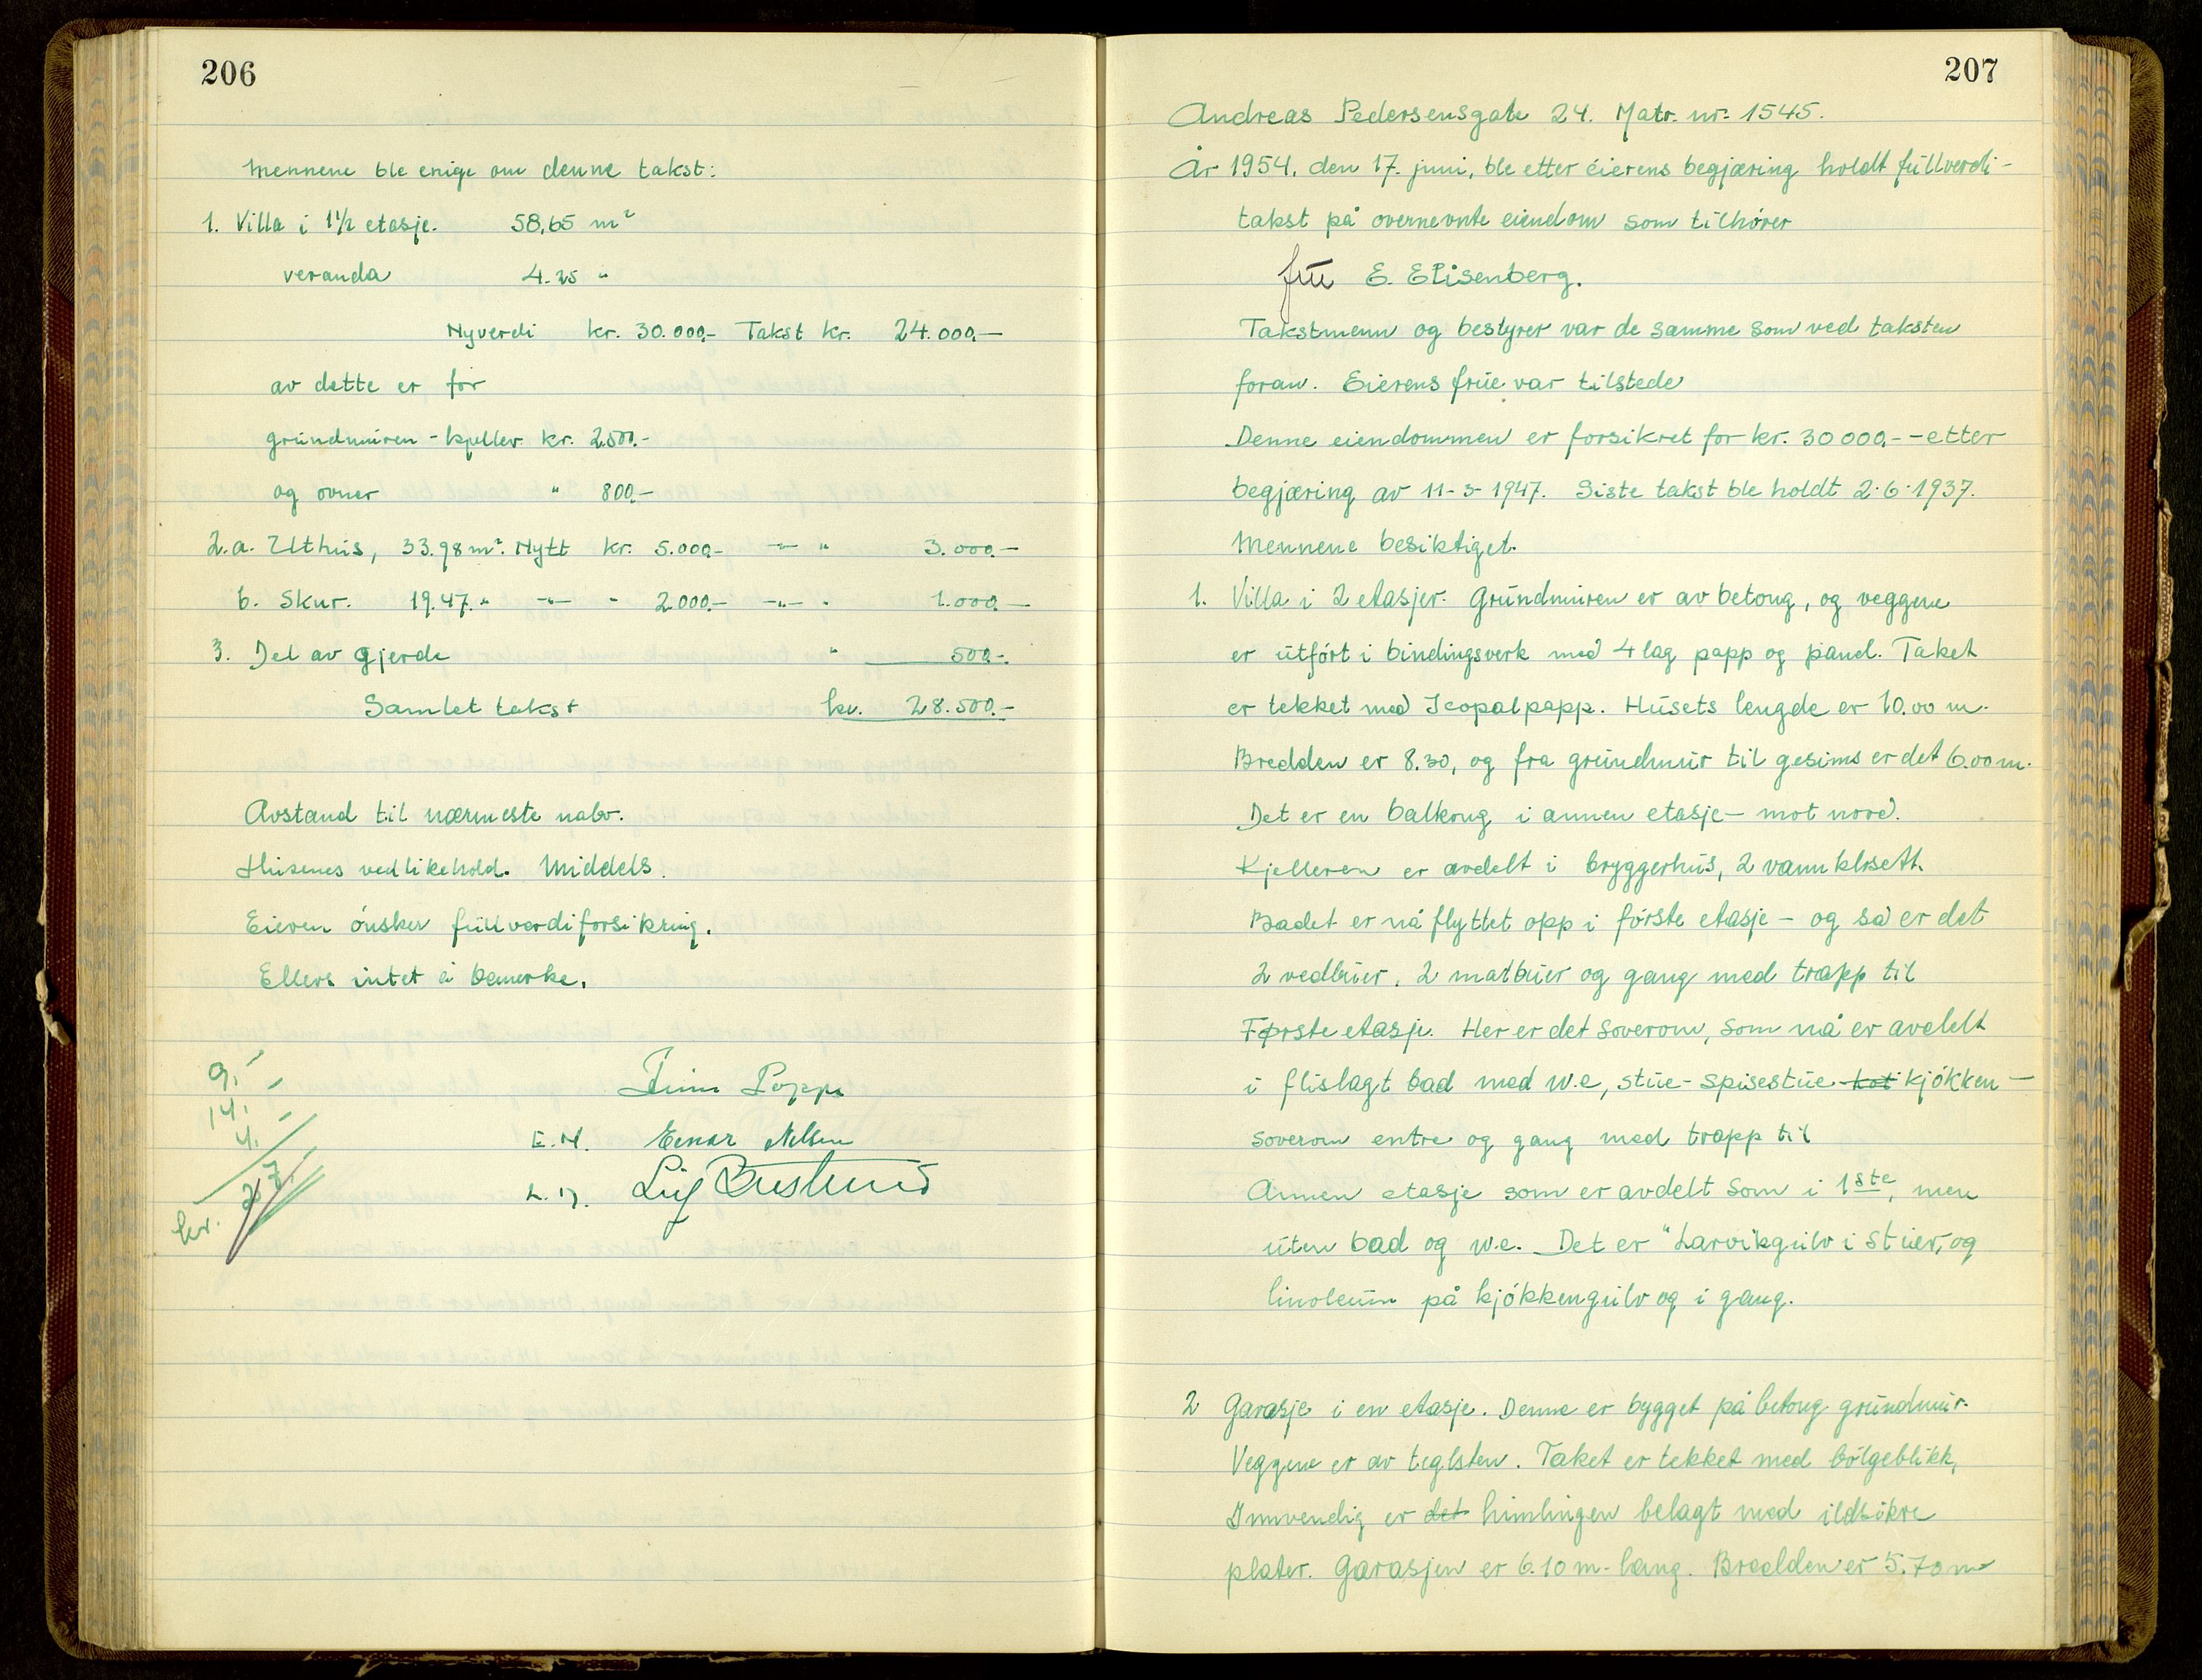 206
Mennene ble enige om denne takst:
1. Villa i 1 1/2 etasje. 58,65 m²
veranda 4.25 "
Nyverdi kr. 30.000,- Takst kr. 24.000,—
av dette er for
grundmuren - kjeller kr. 2.500.-
og ovner " 800,-
2.a. Uthus, 33.98 m². Nytt kr. 5.000,- —"— " 3.000.—
b. Skur. 19.47. " —"— " 2.000.- —"— " 1.000.—
3. Del av gjerde " 500.-
Samlet takst kr. 28.500.-
Avstand til nærmeste nabo.
Husenes vedlikehold. Middels.
Eieren ønsker fullverdiforsikring.
Ellers intet å bemerke.
9.-
14.-
4.-
kr. 27.
E.N. Einar Nelsen
207
Andreas Pedersensgate 24. Matr. nr. 1545.
År 1954, den 17. juni, ble etter eierens begjæring holdt fullverdi-
takst på overnevnte eiendom som tilhører
fru E. Elisenberg.
Takstmenn og bestyrer var de samme som ved taksten
foran. Eierens frue var tilstede
Denne eiendommen er forsikret for kr. 30000.- - etter
begjæring av 11-3-1947. Siste takst ble holdt 2-6-1937.
Mennene besiktiget.
1. Villa i 2 etasjer. Grundmuren er av betong, og veggene
er utført i bindingsverk med 4 lag papp og panel. Taket
er tekket med Icopalpapp. Husets lengde er 10.00 m.
Bredden er 8.30, og fra grundmur til gesims er det 6.00 m.
Det er en balkong i annen etasje - mot nord.
Kjelleren er avdelt i bryggerhus, 2 vannklosett.
Badet er nå flyttet opp i første etasje - og så er det
2 vedbuer, 2 matbuer og gang med trapp til
Første etasje. Her er det soverom, som nå er avdelt
i flislagt bad med w.c, stue - spisestue kot kjøkken -
soverom entre og gang med trapp til
Annen etasje som er avdelt som i 1ste, men
uten bad og w.c. Det er "Larvikgulv i stuer, og
linoleum på kjøkkengulv og i gang.
2 Garasje i en etasje. Denne er bygget på betong grundmur.
Veggene er av teglsten. Taket er tekket med bølgeblikk,
Innvendig er det himlingen belagt med ildsikre
plater. Garasjen er 6.10 m. lang. Bredden er 5.70 m